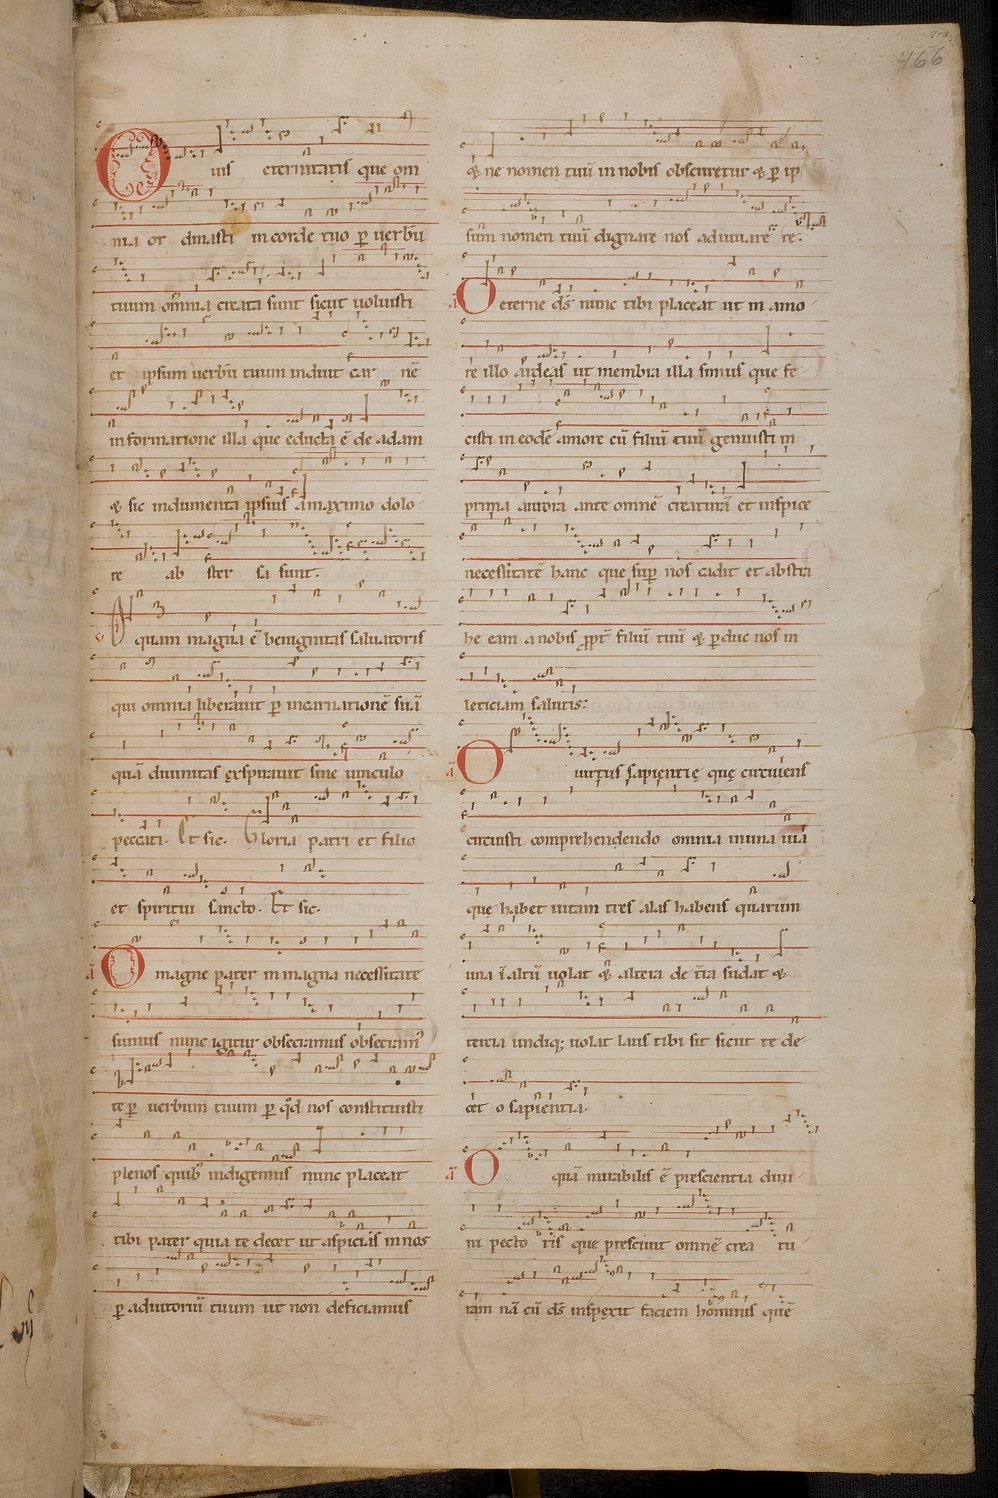 466
O uis eternitatis que om
nia or dinasti in corde tuo ꝑ uerbū
tuum om̄ia creata sunt sicut uoluisti
et ipsum uerbū tuum induit car nē
in formatione illa que educta ē de adam
⁊ sic indumenta ipsius a maximo dolo
re ab ster sa sunt.
v̄ O quam magna ē benignitas saluatoris
qui omnia liberauit ꝑ incarnationē suā
quā diuinitas exspirauit sine uinculo
peccati. Et sic. Gloria patri et filio
et spiritui sancto. Et sic.
ā O magne pater in magna necessitate
sumus nunc igitur obsecramus obsecram᷒
te ꝑ uerbum tuum ꝑ qd̄ nos constituisti
plenos quib᷒ indigemus nunc placeat
tibi pater quia te decet ut aspicias in nos
ꝑ adiutoriū tuum ut non deficiamus
⁊ ne nomen tuū in nobis obscuretur ⁊ ꝑ ip
sum nomen tuū dignare nos adiuuare re.
ā O eterne ds̄ nunc tibi placeat ut in amo
re illo ardeas ut membra illa simus que fe
cisti in eodē amore cū filiū tuū genuisti in
prima aurora ante omnē creaturā et inspice
necessitatē hanc que suꝑ nos cadit et abstra
he eam a nobis ꝓpt̄ filiū tuū ⁊ ꝑduc nos in
leticiam salutis:
ā O uirtus sapientię quę circuiens
circuisti comprehendendo omnia in una uia
que habet uitam tres alas habens quarum
una ī altū uolat ⁊ altera de t̄ra sudat ⁊
tercia undiq; uolat Laus tibi sit sicut te de
cet o sapientia.
ā O quā mirabilis ē prescientia diui
ni pecto ris que presciuit omnē crea tu
ram nā cū ds̄ inspexit faciem hominis quē